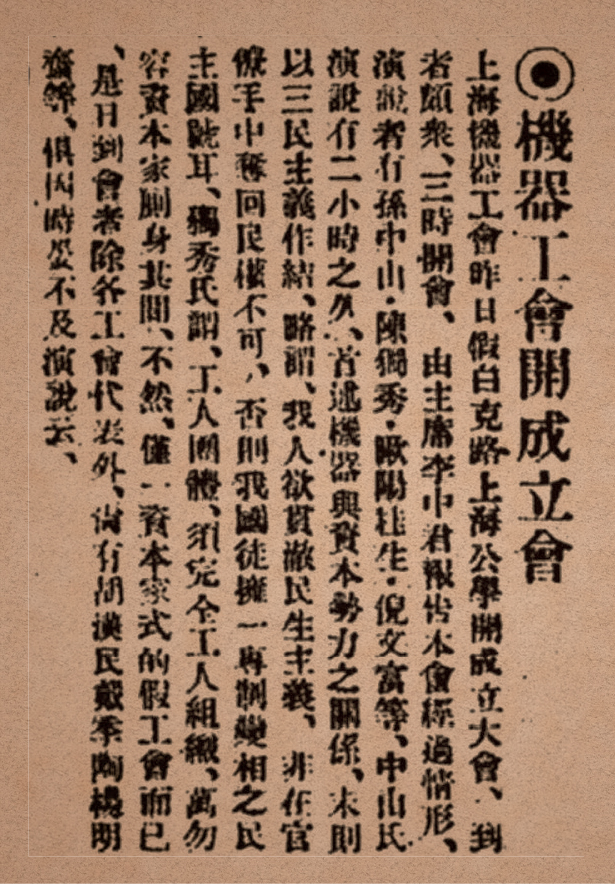 ◉機器工會開成立會
上海機器工會昨日假白克路上海公學開成立大會、到
者頗衆、三時開會、由主席李中君報告本會經過情形、
演說者有孫中山·陳獨秀·歐陽桂生·倪文富等、中山氏
演說有二小時之久、首述機器與資本勢力之關係、末則
以三民主義作結、略謂、我人欲貫澈民生主義、非在官
僚手中奪回民權不可、否則我國徒擁一專制變相之民
主國號耳、獨秀氏謂、工人團體、須完全工人組織、萬勿
容資本家廁身其間、不然、僅一資本家式的假工會而已
、是日到會者除各工會代表外、尚有胡漢民戴季陶楊明
齋等、俱因時晏不及演說云、